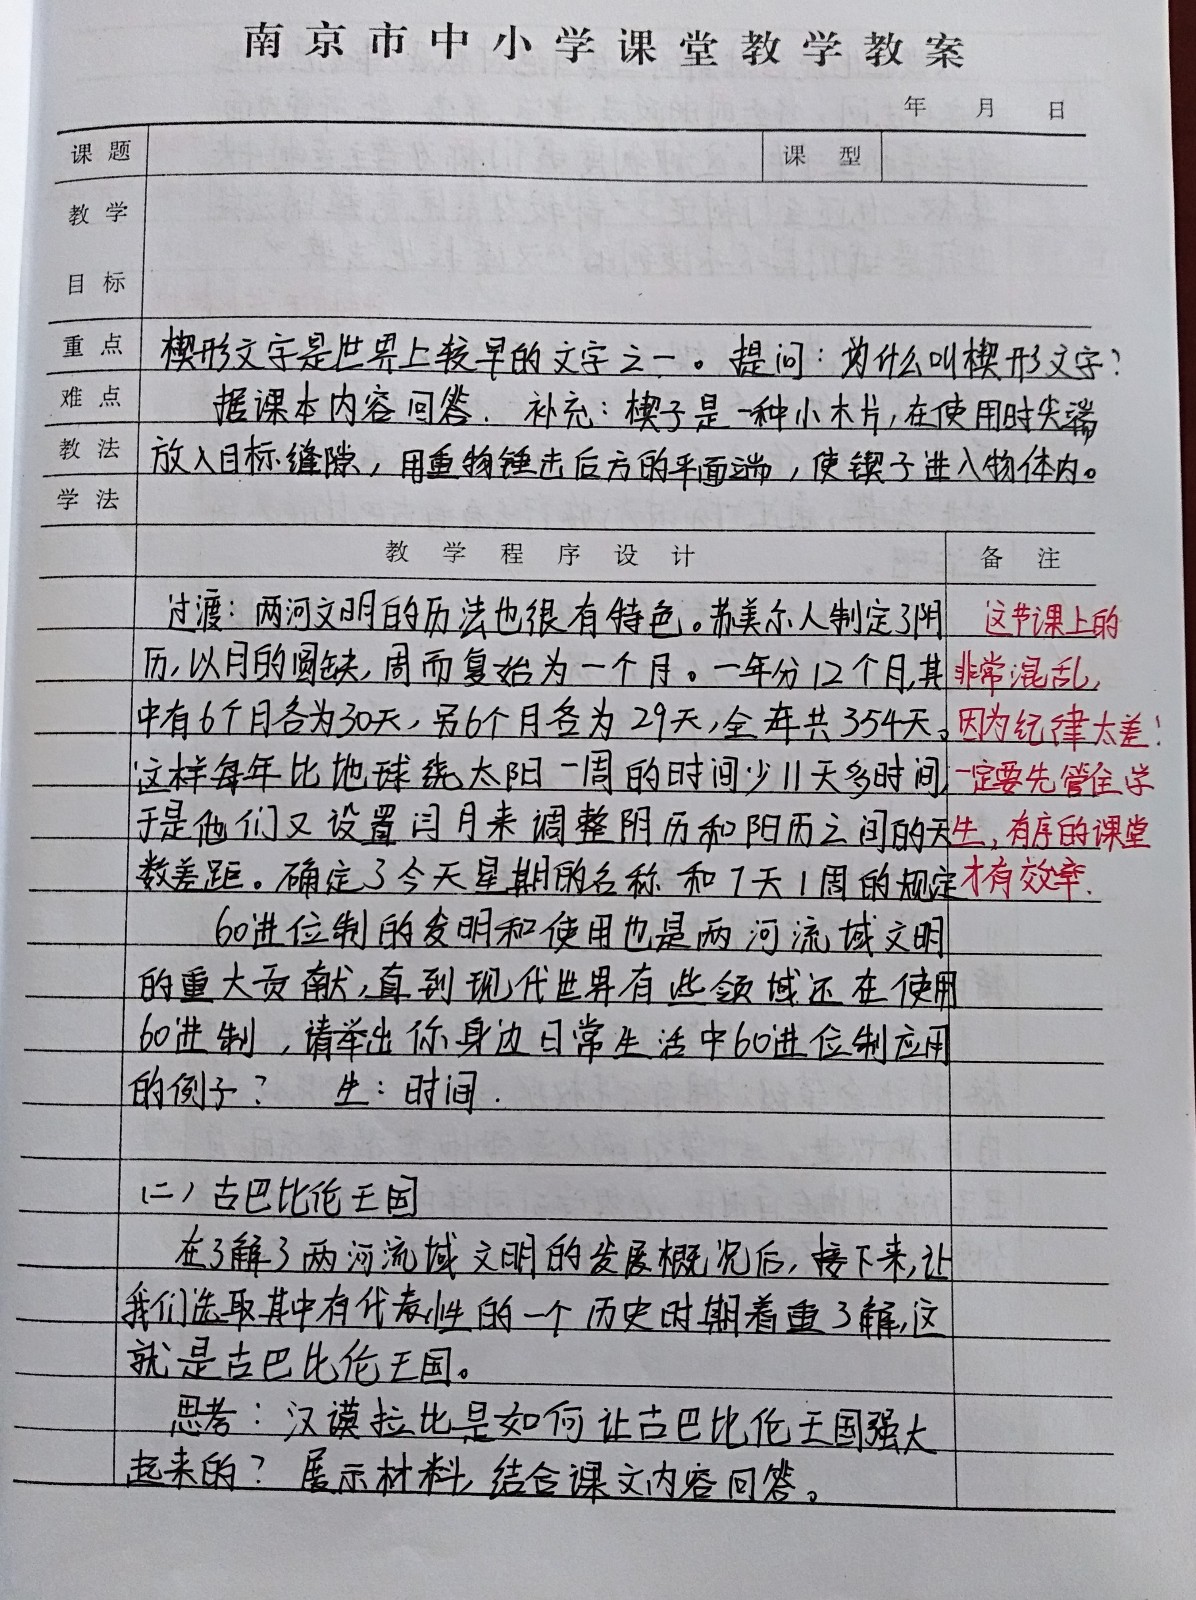 南京市中小学课堂教学教案
年 月 日
课题 课型
教学
目标
重点 楔形文字是世界上较早的文字之一。提问：为什么叫楔形文字？
难点 据课本内容回答. 补充：楔子是一种小木片，在使用时尖端
教法 放入目标缝隙，用重物锤击后方的平面端，使锲子进入物体内。
学法
教学程序设计 备注
过渡：两河文明的历法也很有特色。苏美尔人制定了阴
历，以月的圆缺，周而复始为一个月。一年分12个月，其
中有6个月各为30天，另6个月各为29天，全年共354天。
这样每年比地球绕太阳一周的时间少11天多时间，
于是他们又设置闰月来调整阴历和阳历之间的天
数差距。确定了今天星期的名称和7天1周的规定
60进位制的发明和使用也是两河流域文明
的重大贡献，直到现代世界有些领域还在使用
60进制，请举出你身边日常生活中60进位制应用
的例子？ 生：时间.
(二) 古巴比伦王国
在了解了两河流域文明的发展概况后，接下来，让
我们选取其中有代表性的一个历史时期着重了解，这
就是古巴比伦王国。
思考：汉谟拉比是如何让古巴比伦王国强大
起来的？展示材料，结合课文内容回答。
这节课上的
非常混乱，
因为纪律太差！
一定要先管住学
生，有序的课堂
才有效率.